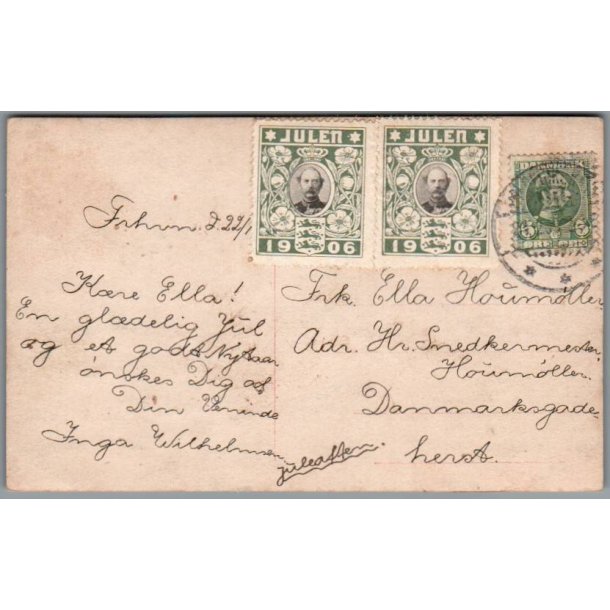 JULEN
1906
JULEN
1906
DANMARK
5 5
ØRE
Frhvn. d. 22/1
Kære Ella!
En glædelig Jul
og et godt Nytaar
ønskes Dig af
Din Veninde
Inga Wilhelmsen
juleaften.
Frk. Ella Houmøller
Adr. Hr. Snedkermester
Houmøller.
Danmarksgade
herst.